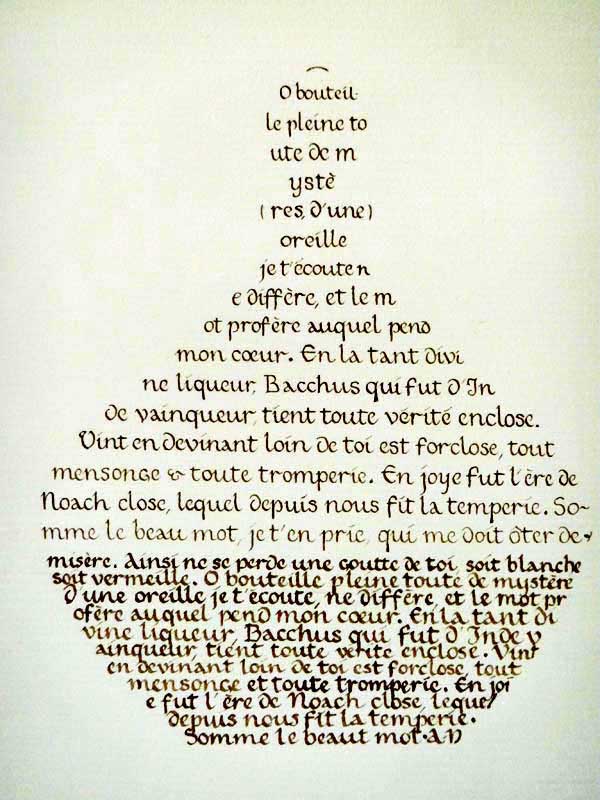 O bouteil-
le pleine to
ute de m
ystè
(res, d'une)
oreille
je t'écoute n
e diffère, et le m
ot profère auquel pend
mon cœur. En la tant divi
ne liqueur, Bacchus qui fut d'In
de vainqueur, tient toute vérité enclose.
Vint en devinant loin de toi est forclose, tout
mensonge & toute tromperie. En joye fut l'ère de
Noach close, lequel depuis nous fit la temperie. So~
mme le beau mot, je t'en prie, qui me doit ôter de
misère. Ainsi ne se perde une goutte de toi, soit blanche
soit vermeille. O bouteille pleine toute de mystère
d'une oreille je t'écoute, ne diffère, et le mot pr
ofère auquel pend mon cœur. En la tant di
vine liqueur, Bacchus qui fut d'Inde v
ainqueur, tient toute vérité enclose. Vint
en devinant loin de toi est forclose, tout
mensonge et toute tromperie. En joi
e fut l'ère de Noach close, leque
depuis nous fit la temperie.
Somme le beaut mot.